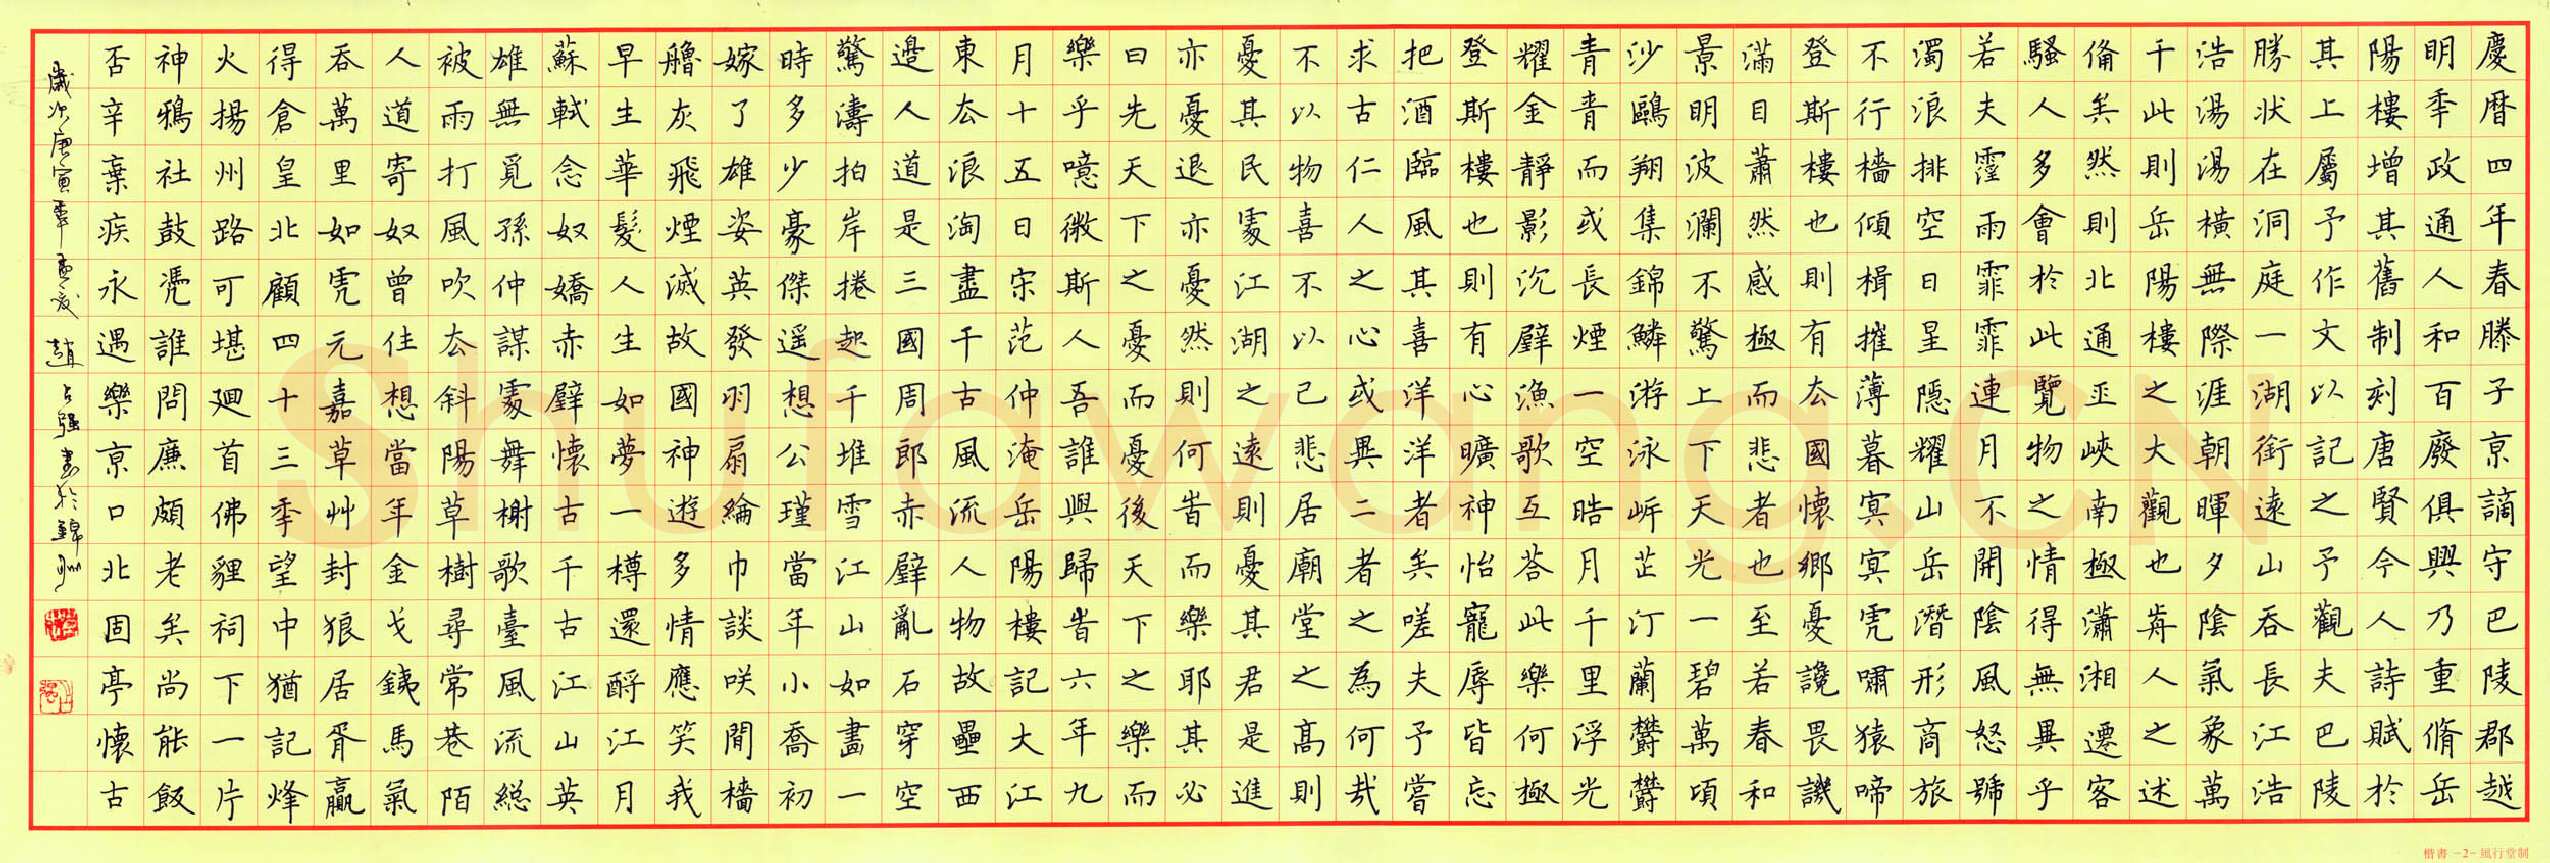 慶曆四年春滕子京謫守巴陵郡越
明年政通人和百廢俱興乃重脩岳
陽樓增其舊制刻唐賢今人詩賦於
其上屬予作文以記之予觀夫巴陵
勝狀在洞庭一湖銜遠山吞長江浩
浩湯湯橫無際涯朝暉夕陰氣象萬
千此則岳陽樓之大觀也歬人之述
備矣然則北通巫峽南極瀟湘遷客
騷人多會於此覽物之情得無異乎
若夫霪雨霏霏連月不開陰風怒號
濁浪排空日星隱耀山岳潛形商旅
不行檣傾楫摧薄暮冥冥虎嘯猿啼
登斯樓也則有去國懷鄉憂讒畏譏
滿目蕭然感極而悲者也至若春和
景明波瀾不驚上下天光一碧萬頃
沙鷗翔集錦鱗游泳岸芷汀蘭鬱鬱
青青而或長煙一空皓月千里浮光
耀金靜影沉璧漁歌互荅此樂何極
登斯樓也則有心曠神怡寵辱皆忘
把酒臨風其喜洋洋者矣嗟夫予嘗
求古仁人之心或異二者之為何哉
不以物喜不以己悲居廟堂之高則
憂其民處江湖之遠則憂其君是進
亦憂退亦憂然則何旹而樂耶其必
曰先天下之憂而憂後天下之樂而
樂乎噫微斯人吾誰與歸旹六年九
月十五日宋范仲淹岳陽樓記大江
東去浪淘盡千古風流人物故壘西
邊人道是三國周郎赤壁亂石穿空
驚濤拍岸捲起千堆雪江山如畫一
時多少豪傑遥想公瑾當年小喬初
嫁了雄姿英發羽扇綸巾談咲間檣
艣灰飛煙滅故國神遊多情應笑我
早生華髮人生如夢一樽還酹江月
蘇軾念奴嬌赤壁懷古千古江山英
雄無覓孫仲謀處舞榭歌臺風流総
被雨打風吹去斜陽草樹尋常巷陌
人道寄奴曾住想當年金戈銕馬氣
吞萬里如虎元嘉草艸封狼居胥贏
得倉皇北顧四十三年望中猶記烽
火揚州路可堪廻首佛貍祠下一片
神鴉社鼓憑誰問廉頗老矣尚能飯
否辛棄疾永遇樂京口北固亭懷古
歲次庚寅年孟夏趙占強書於錦州
Shufawang.CN
楷書 -2- 風行堂制